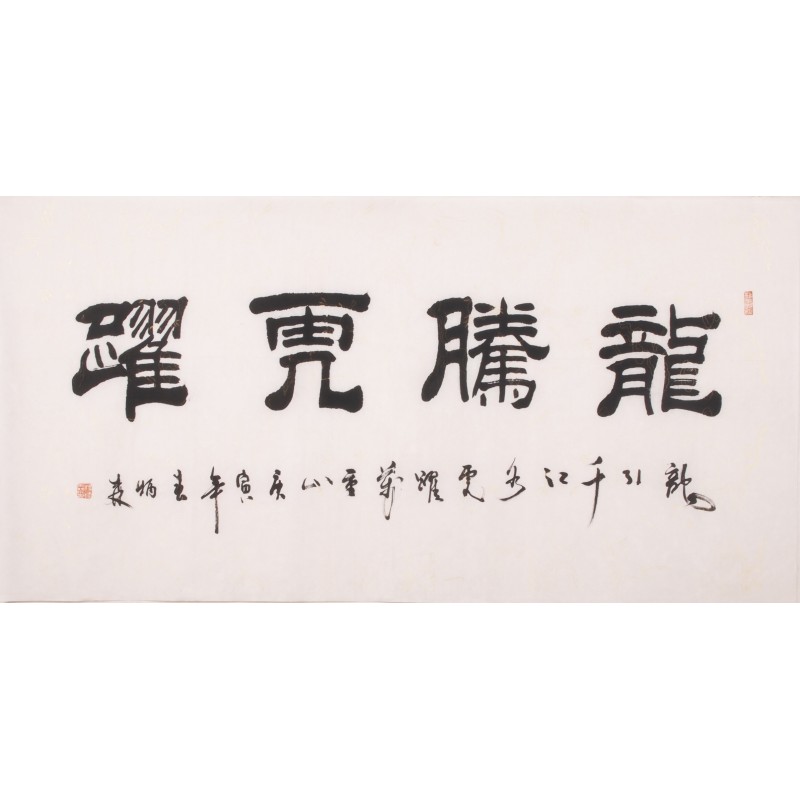 龍騰虎躍
龍引千江水虎躍萬重山庚寅年炳